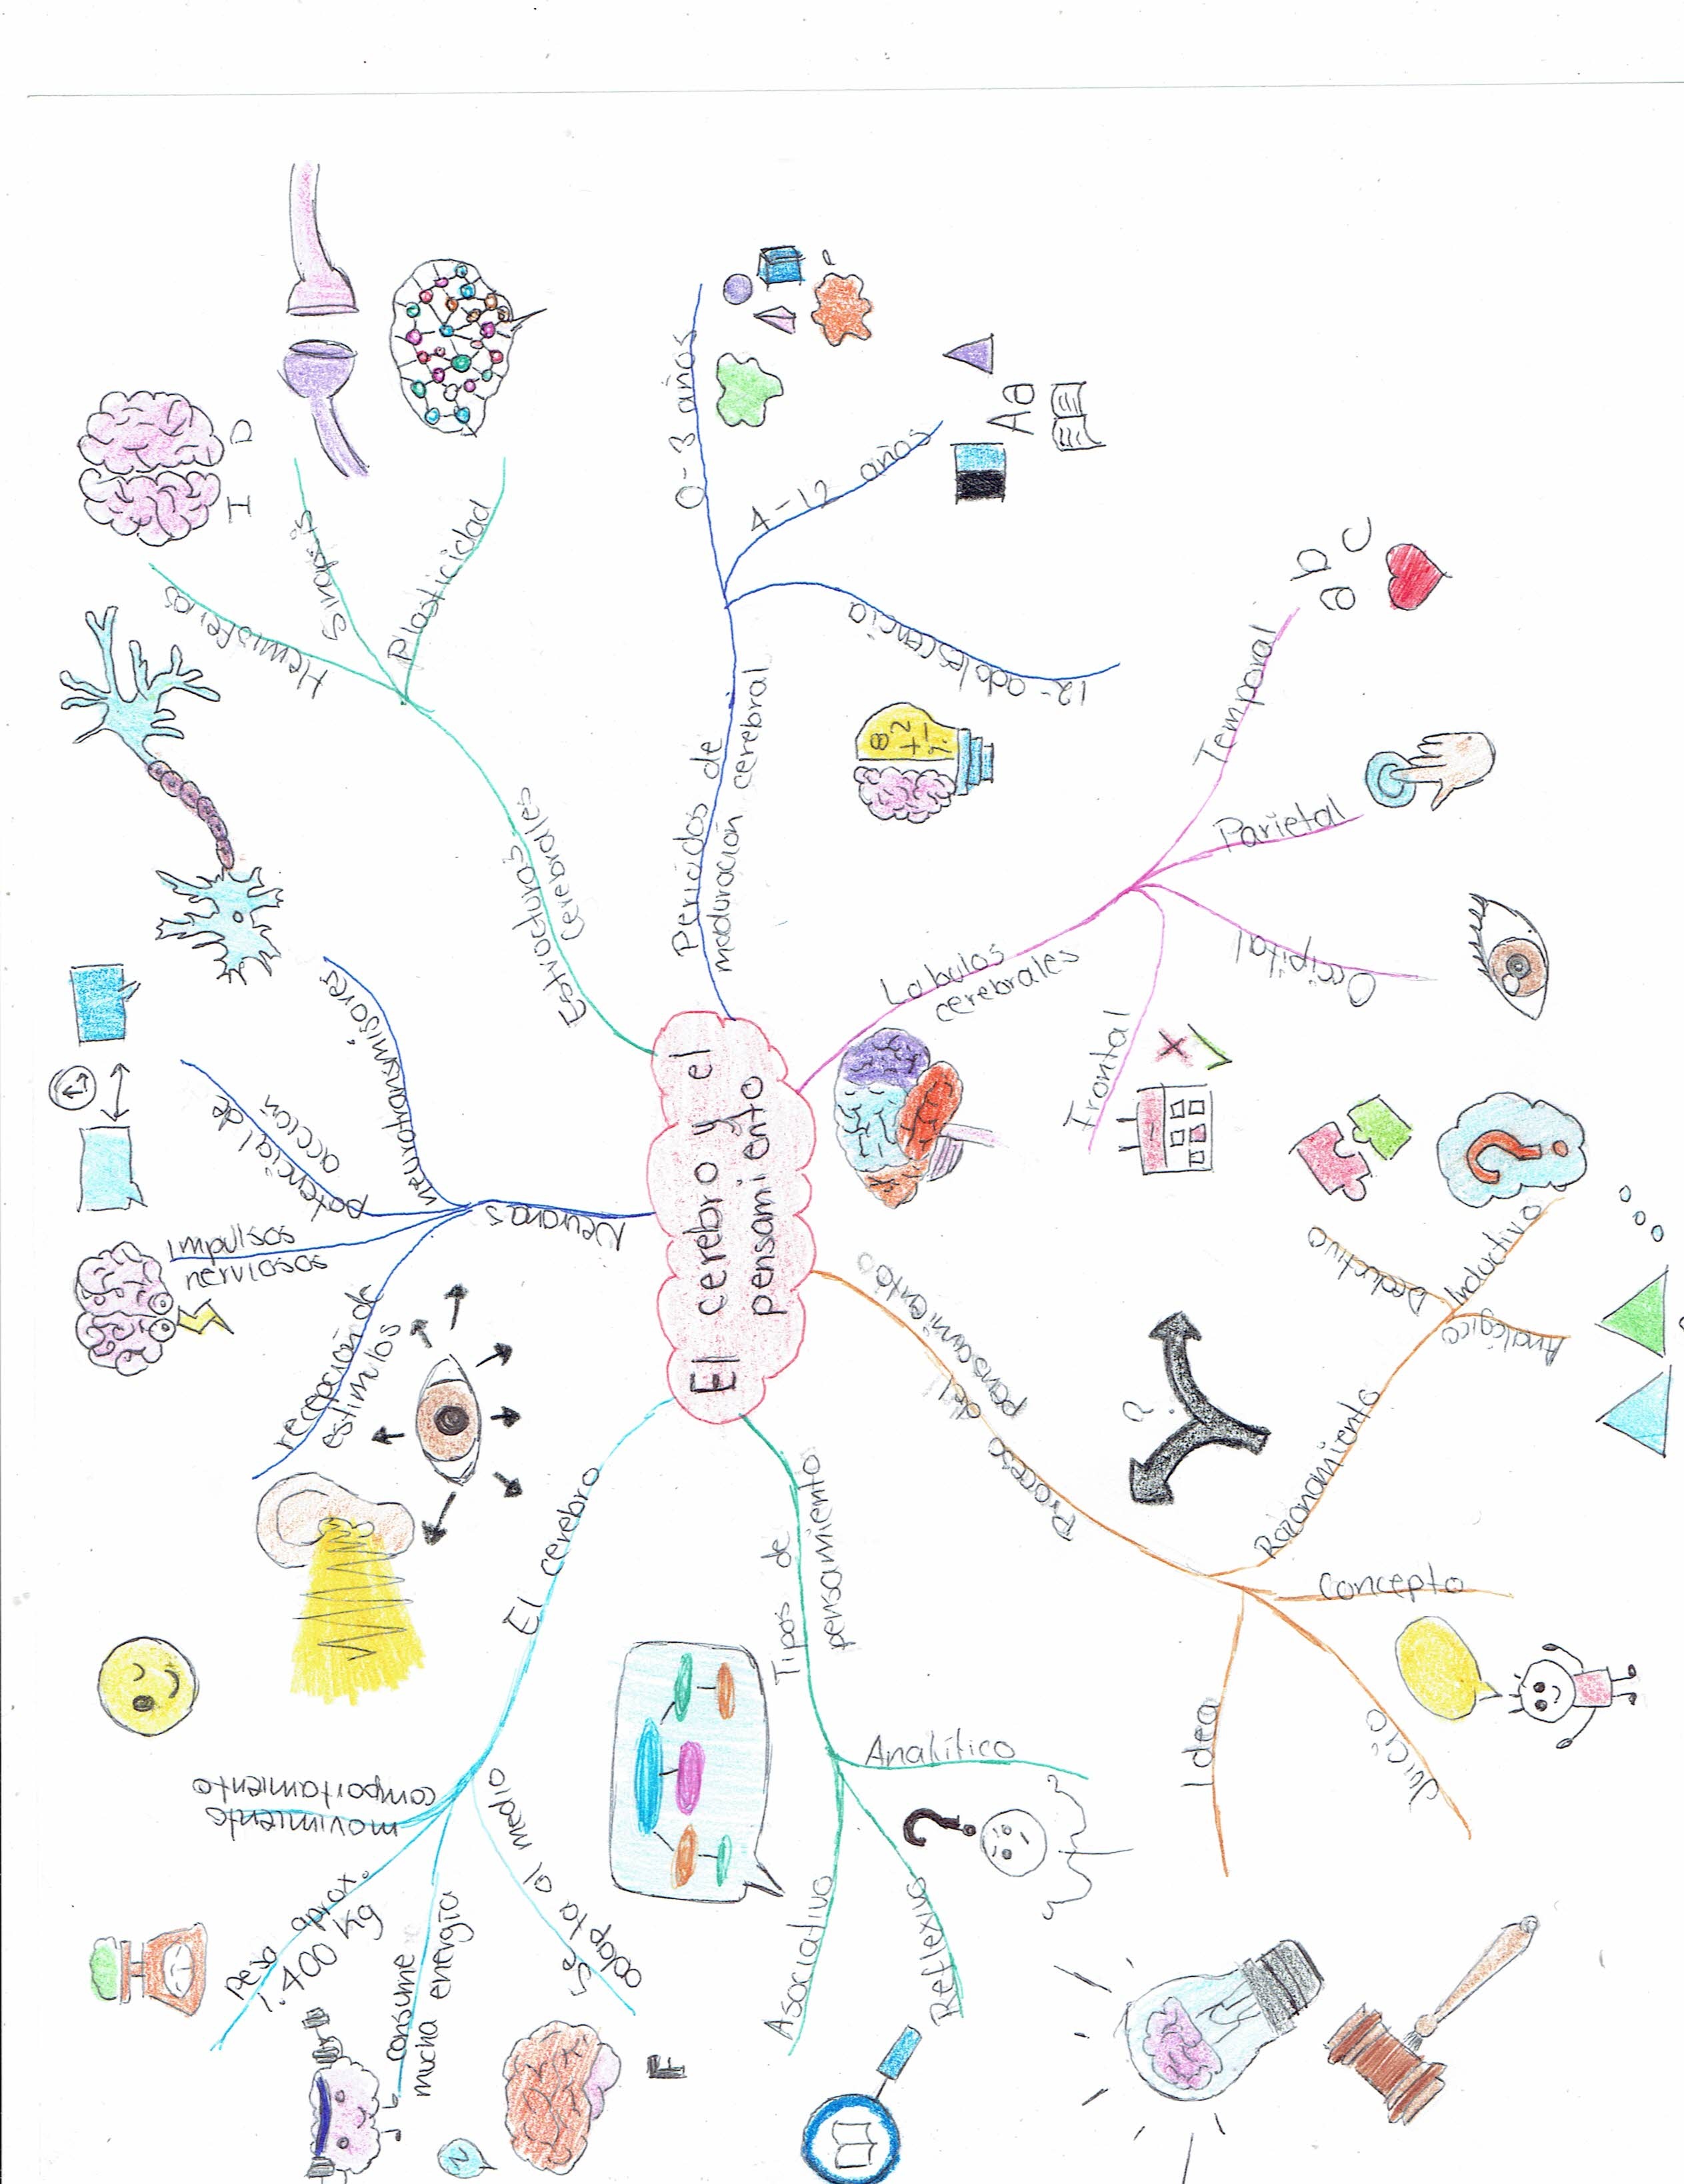 El cerebro y el
pensamiento
El cerebro
Pesa aprox.
1.400 Kg
movimiento
comportamiento
consume
mucha energía
Se
adapta al medio
F
Neuronas
recepción de
estimulos
Impulsos
nerviosos
potencial de
acción
neurotransmisores
Estructuras
cerebrales
Hemisferos
I D
Sinapsis
Plasticidad
Periodos de
maduración cerebral
0-3 años
4-12 años
Aa
12-adolescencia
8
2
+ -
Lobulos
cerebrales
Frontal
Occipital
Parietal
Temporal
a b c
Proceso del
pensamiento
Idea
Juicio
Concepto
Razonamiento
?
Deductivo
Inductivo
?
Analógico
Tipos de
pensamiento
Asociativo
Reflexivo
Analítico
?